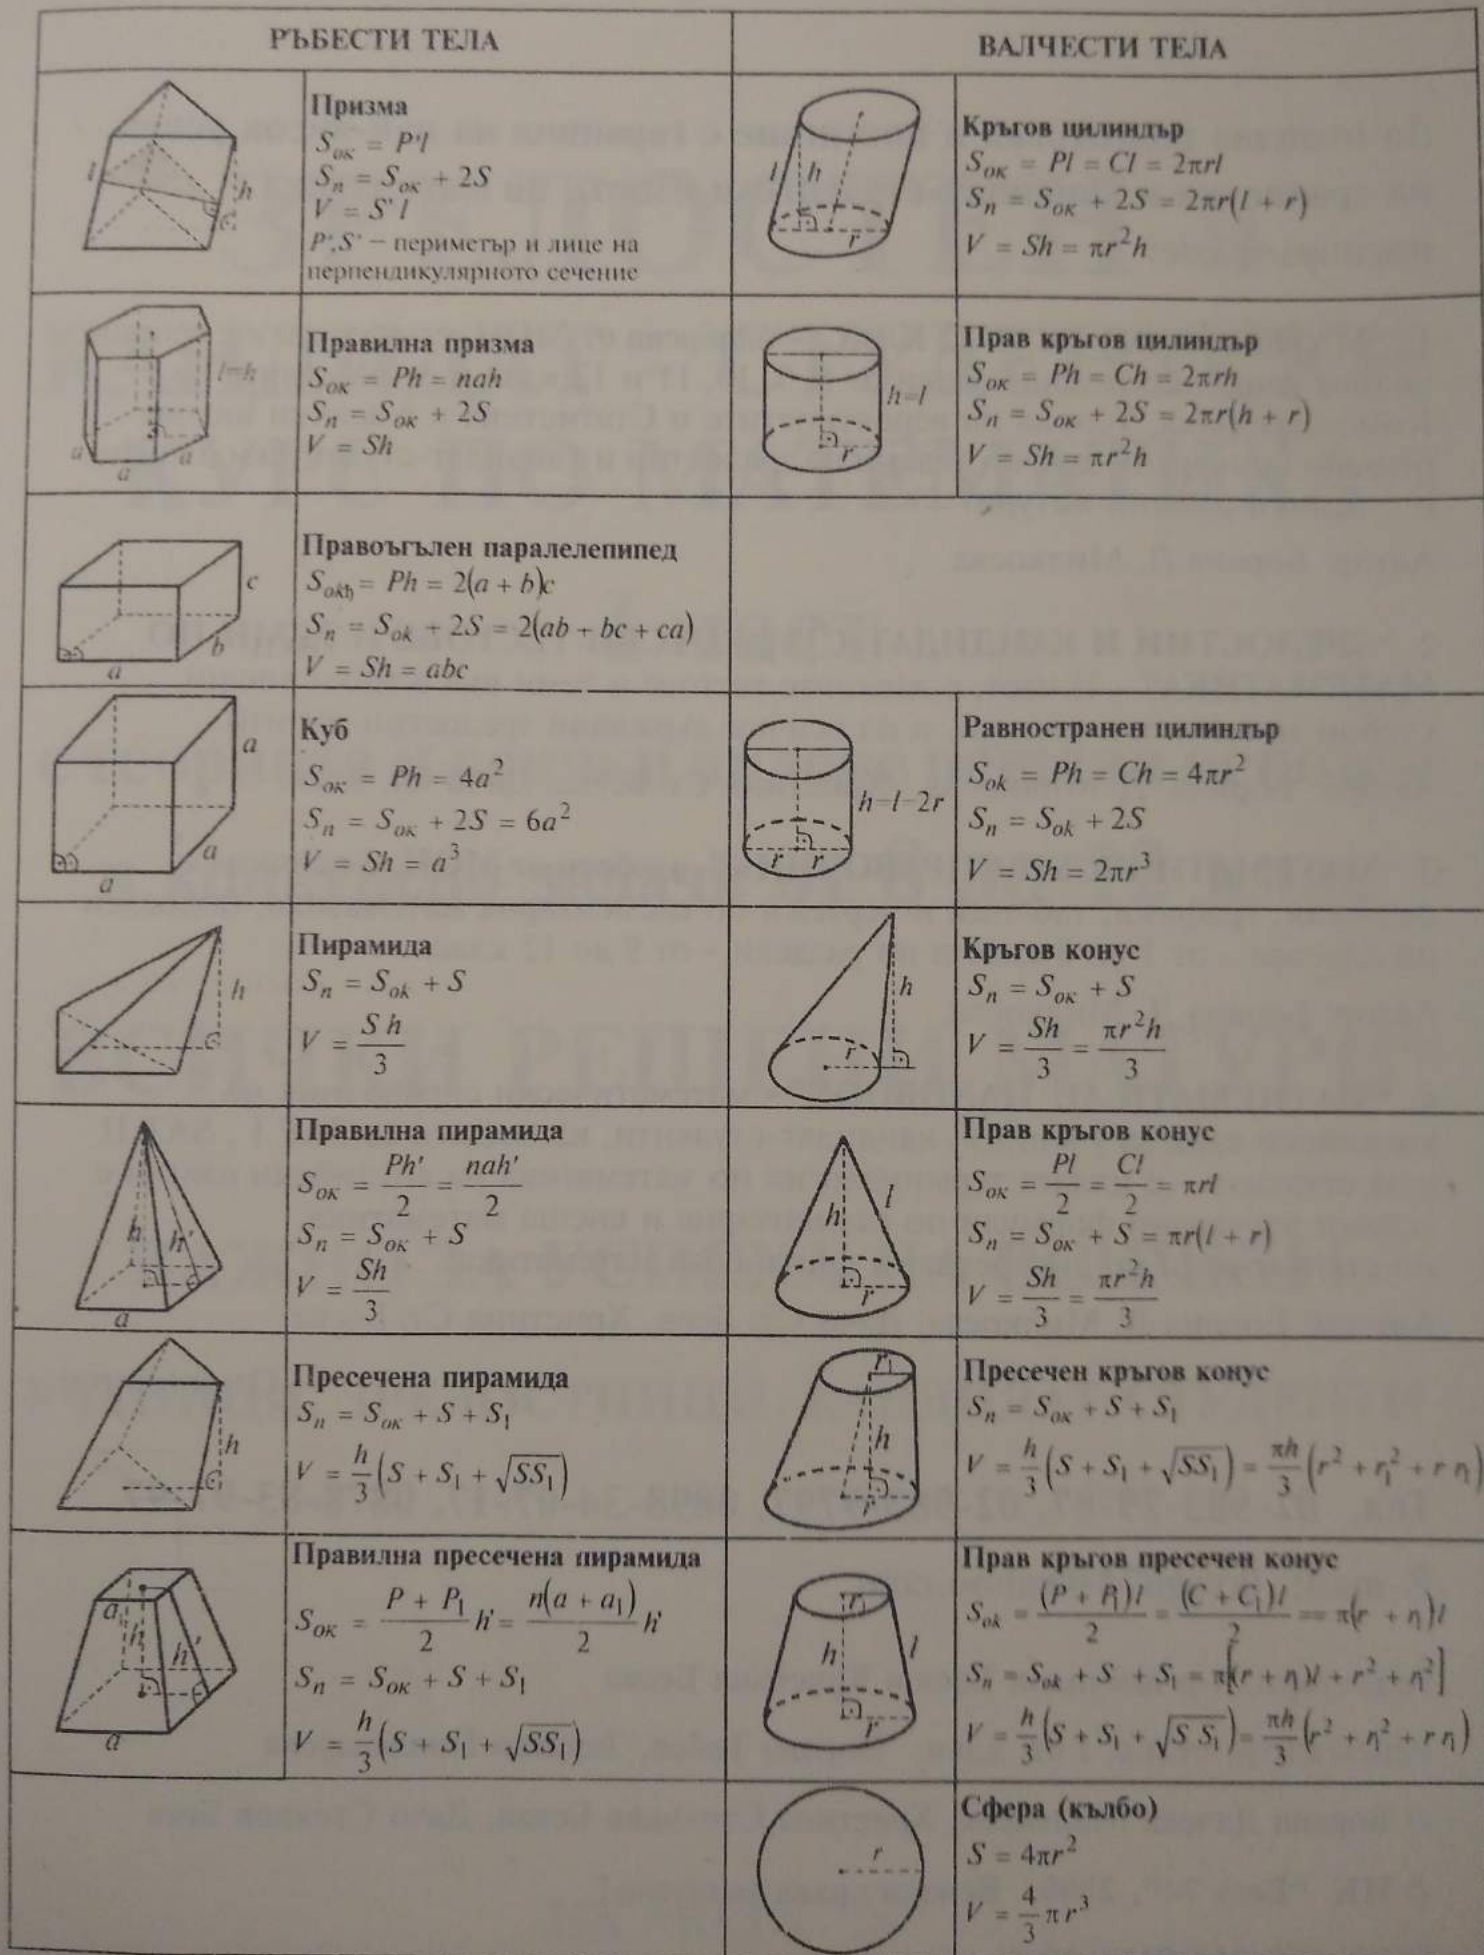 РЪБЕСТИ ТЕЛА
ВАЛЧЕСТИ ТЕЛА
l
h
Призма
S_ок = P'l
S_п = S_ок + 2S
V = S' l
P', S' – периметър и лице на
перпендикулярното сечение
l
h
r
Кръгов цилиндър
S_ок = Pl = Cl = 2πrl
S_п = S_ок + 2S = 2πr(l + r)
V = Sh = πr²h
l=h
a
a
a
a
Правилна призма
S_ок = Ph = nah
S_п = S_ок + 2S
V = Sh
h=l
r
Прав кръгов цилиндър
S_ок = Ph = Ch = 2πrh
S_п = S_ок + 2S = 2πr(h + r)
V = Sh = πr²h
c
b
a
Правоъгълен паралелепипед
S_okћ = Ph = 2(a + b)c
S_п = S_ok + 2S = 2(ab + bc + ca)
V = Sh = abc
a
a
a
Куб
S_ок = Ph = 4a²
S_п = S_ок + 2S = 6a²
V = Sh = a³
h=l=2r
r r
Равностранен цилиндър
S_ok = Ph = Ch = 4πr²
S_п = S_ok + 2S
V = Sh = 2πr³
h
Пирамида
S_п = S_ok + S
V = S h/3
h
r
Кръгов конус
S_п = S_ок + S
V = Sh/3 = πr²h/3
h h'
a
Правилна пирамида
S_ок = Ph'/2 = nah'/2
S_п = S_ок + S
V = Sh/3
h
l
r
Прав кръгов конус
S_ок = Pl/2 = Cl/2 = πrl
S_п = S_ок + S = πr(l + r)
V = Sh/3 = πr²h/3
h
Пресечена пирамида
S_п = S_ок + S + S₁
V = h/3 (S + S₁ + √SS₁)
r₁
h
r
Пресечен кръгов конус
S_п = S_ок + S + S₁
V = h/3 (S + S₁ + √SS₁) = πh/3 (r² + r₁² + r r₁)
a₁
h h'
a
Правилна пресечена пирамида
S_ок = P + P₁/2 h' = n(a + a₁)/2 h'
S_п = S_ок + S + S₁
V = h/3 (S + S₁ + √SS₁)
r₁
h
l
r
Прав кръгов пресечен конус
S_ok = (P + P₁) l/2 = (C + C₁) l/2 == π(r + r₁) l
S_п = S_ok + S + S₁ = π[(r + r₁)l + r² + r₁²]
V = h/3 (S + S₁ + √S S₁) = πh/3 (r² + r₁² + r r₁)
r
Сфера (кълбо)
S = 4πr²
V = 4/3 π r³